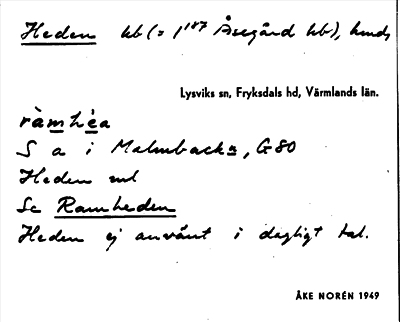 Heden hb (= 1¹⁸⁷ Åsegård hb), hmds
Lysviks sn, Fryksdals hd, Värmlands län.
ràmhéa
S a i Malmbacka, G80
Heden ml
Se Ramheden
Heden ej använt i dagligt tal.
ÅKE NORÉN 1949